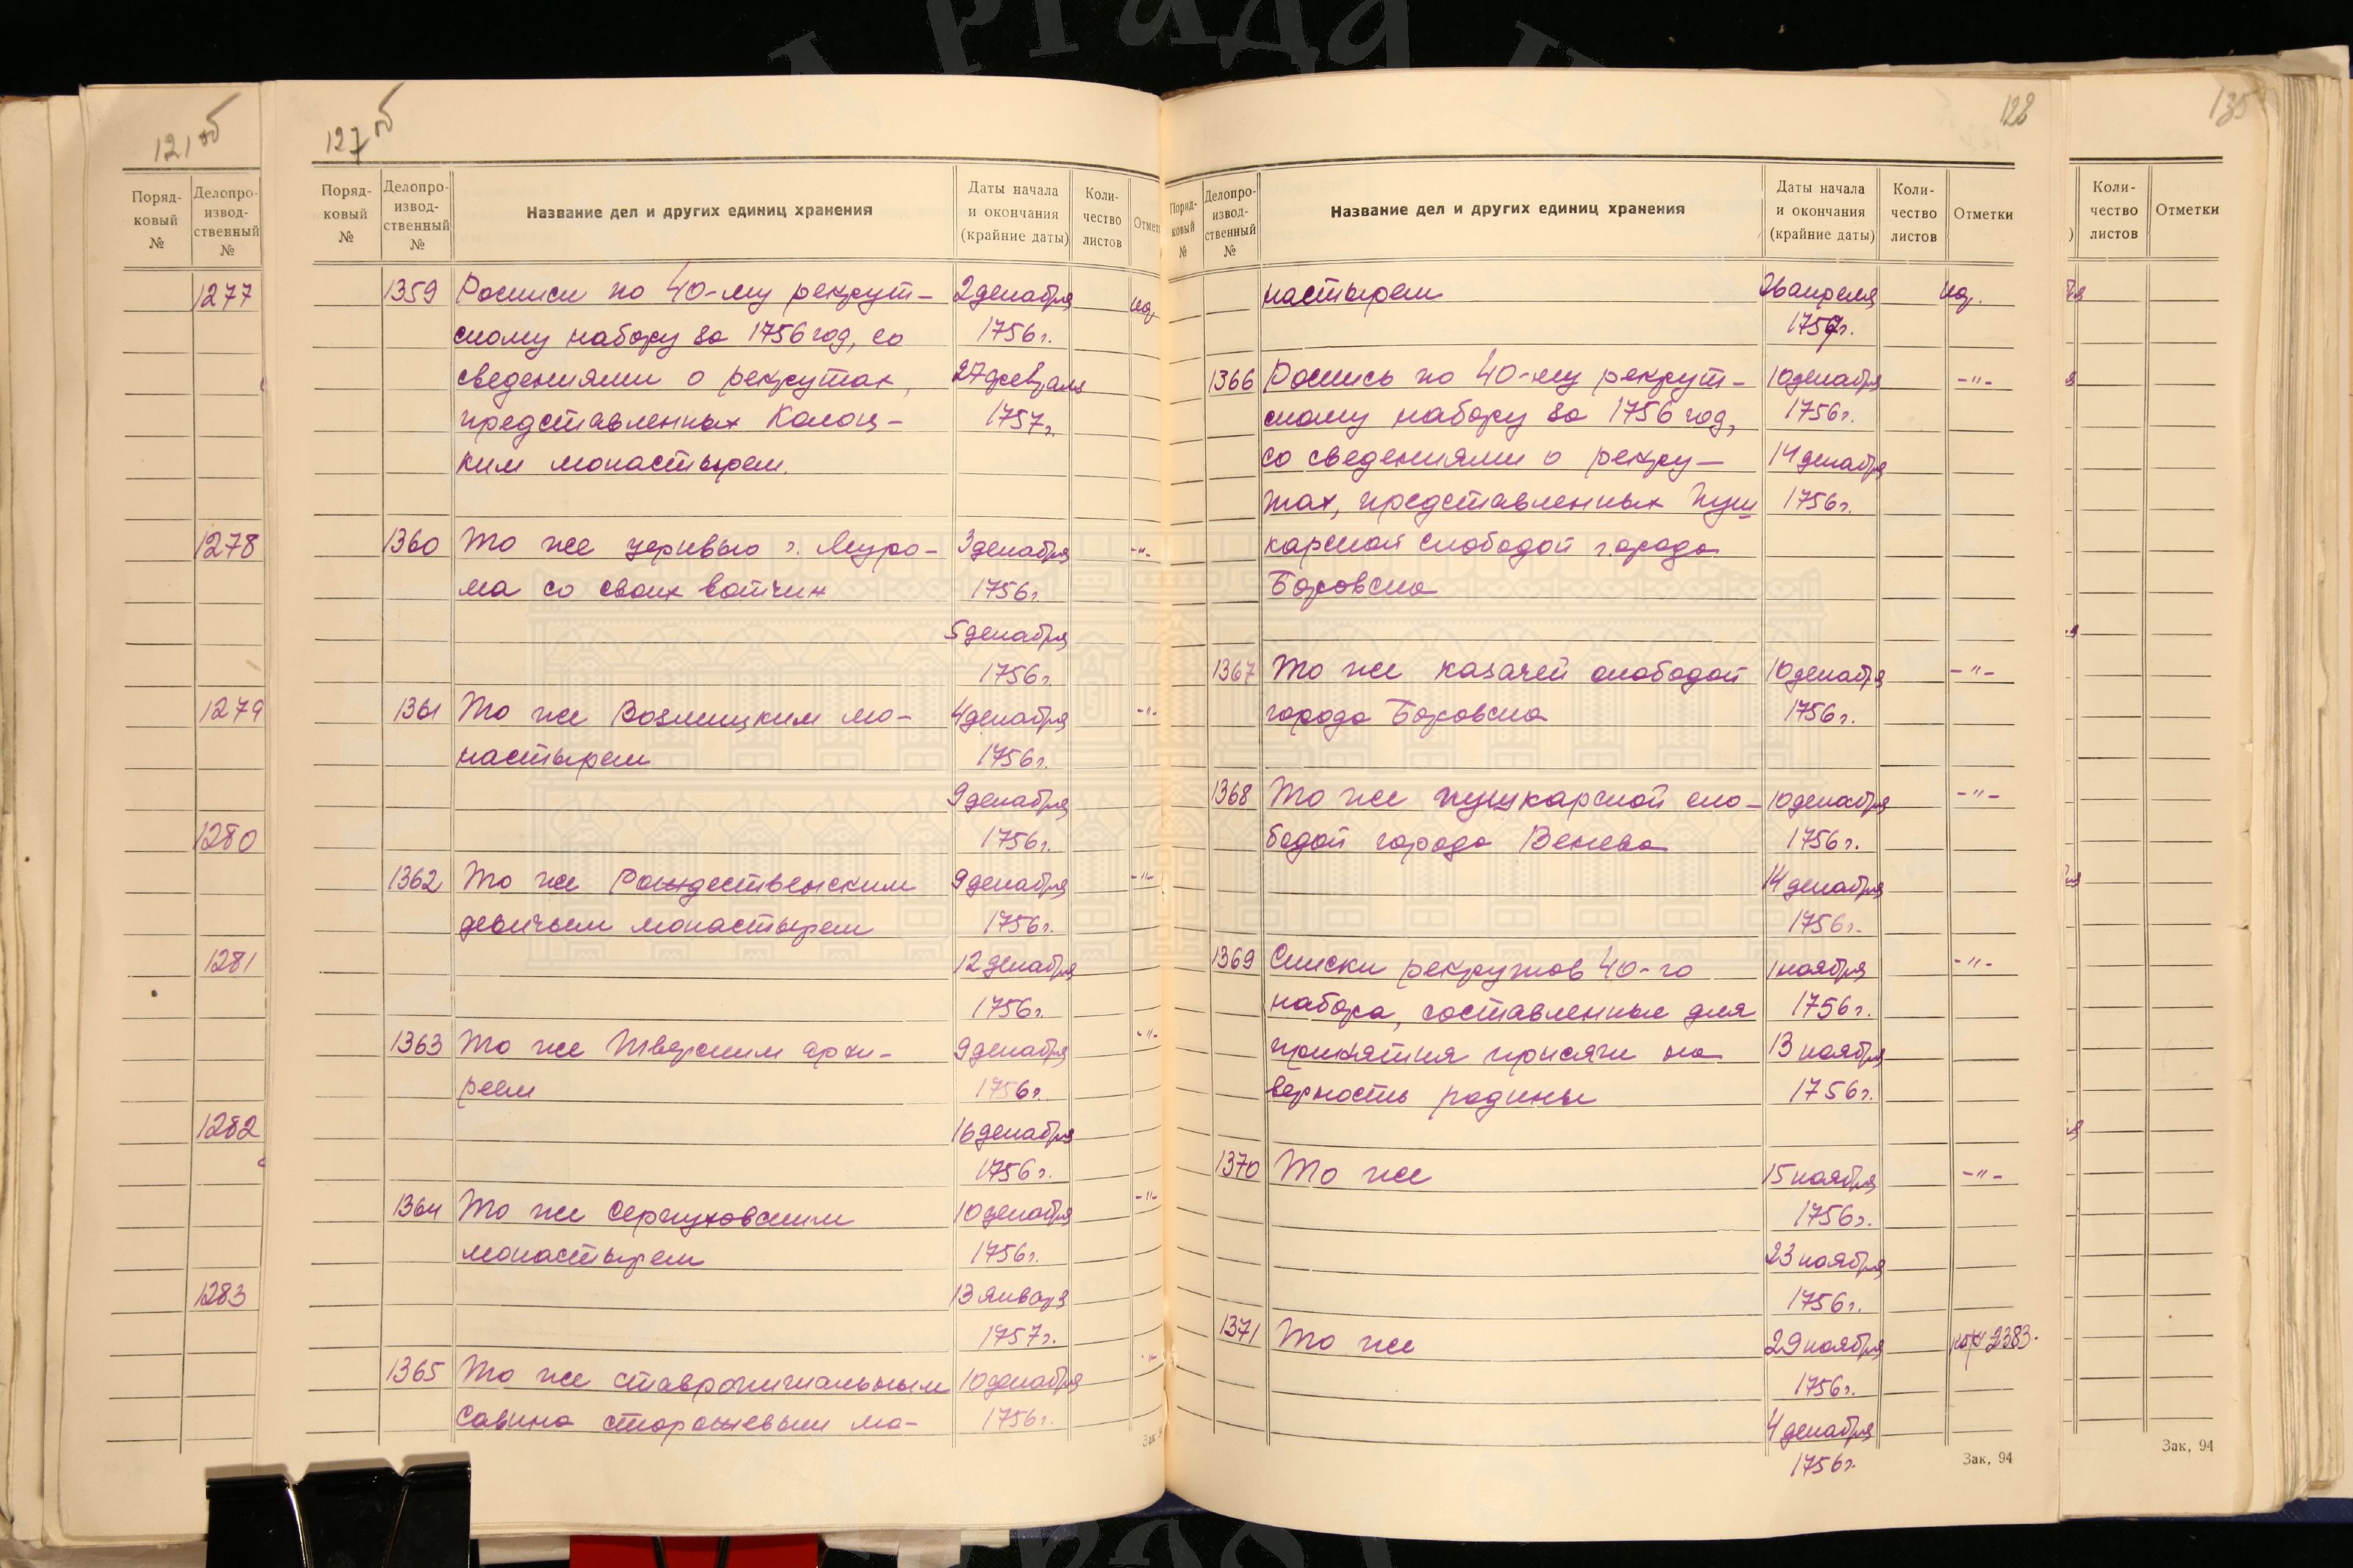 121об
Поряд-
ковый
№
Делопро-
извод-
ственный
№
1277
1278
1279
1280
1281
1282
1283
127об
Поряд-
ковый
№
Делопро-
извод-
ственный
№
Название дел и других единиц хранения
Даты начала
и окончания
(крайние даты)
Коли-
чество
листов
1359 Росписи по 40-му рекрут- 2 декабря
скому набору за 1756 год, со 1756 г.
сведениями о рекрутах, 27 февраля
представленных Колоц- 1757 г.
ким монастырем.
1360 То же церквью г. Муро- 3 декабря -"-
ма со своих вотчин 1756 г.
5 декабря
1756 г.
1361 То же Возмицким мо- 4 декабря -"-
настырем 1756 г.
9 декабря
1756 г.
1362 То же Рождественским 9 декабря -"-
девичьем монастырем 1756 г.
12 декабря
1756 г.
1363 То же Тверским архи- 9 декабря -"-
реем 1756 г.
16 декабря
1756 г.
1364 То же Серпуховским 10 декабря -"-
монастырем 1756 г.
13 января
1757 г.
1365 То же ставропигиальным 10 декабря -"-
Савина сторожевым мо- 1756 г.
128
Поряд-
ковый
№
Делопро-
извод-
ственный
№
Название дел и других единиц хранения
Даты начала
и окончания
(крайние даты)
Коли-
чество
листов
Отметки
настырем 26 апреля
1757 г.
1366 Роспись по 40-му рекрут- 10 декабря -"-
скому набору за 1756 год, 1756 г.
со сведениями о рекру- 14 декабря
тах, представленных Пуш 1756 г.
карской слободой города
Боровска
1367 То же казачей слободой 10 декабря -"-
города Боровска 1756 г.
1368 То же пушкарской сло- 10 декабря -"-
бодой города Венева 1756 г.
14 декабря
1756 г.
1369 Списки рекрутов 40-го 1 ноября -"-
набора, составленные для 1756 г.
принятия присяги на 13 ноября
верность родины 1756 г.
1370 То же 15 ноября -"-
1756 г.
23 ноября
1756 г.
1371 То же 29 ноября 2383.
1756 г.
4 декабря
1756 г.
Зак, 94
135
Коли-
чество
листов
Отметки
Зак, 94